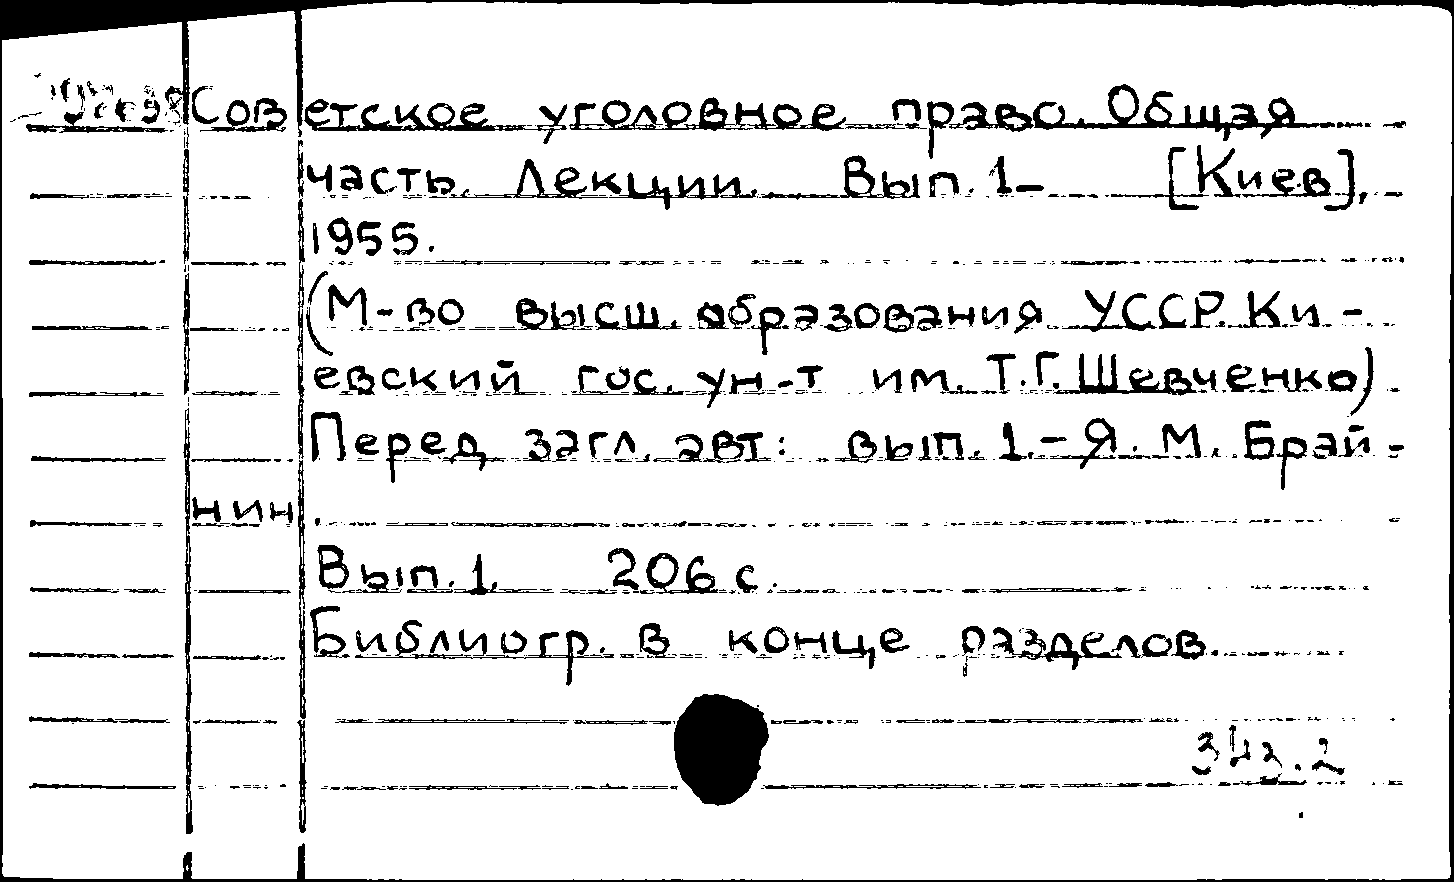 Советское уголовное право. Общая
часть. Лекции. Вып. 1- [Киев],
1955.
(М-во высш. образования УССР. Ки-
евский гос. ун-т им. Т.Г. Шевченко)
Перед загл. авт: вып. 1.- Я. М. Брай-
нин.
Вып. 1. 206 с.
Библиогр. в конце разделов.
343.2